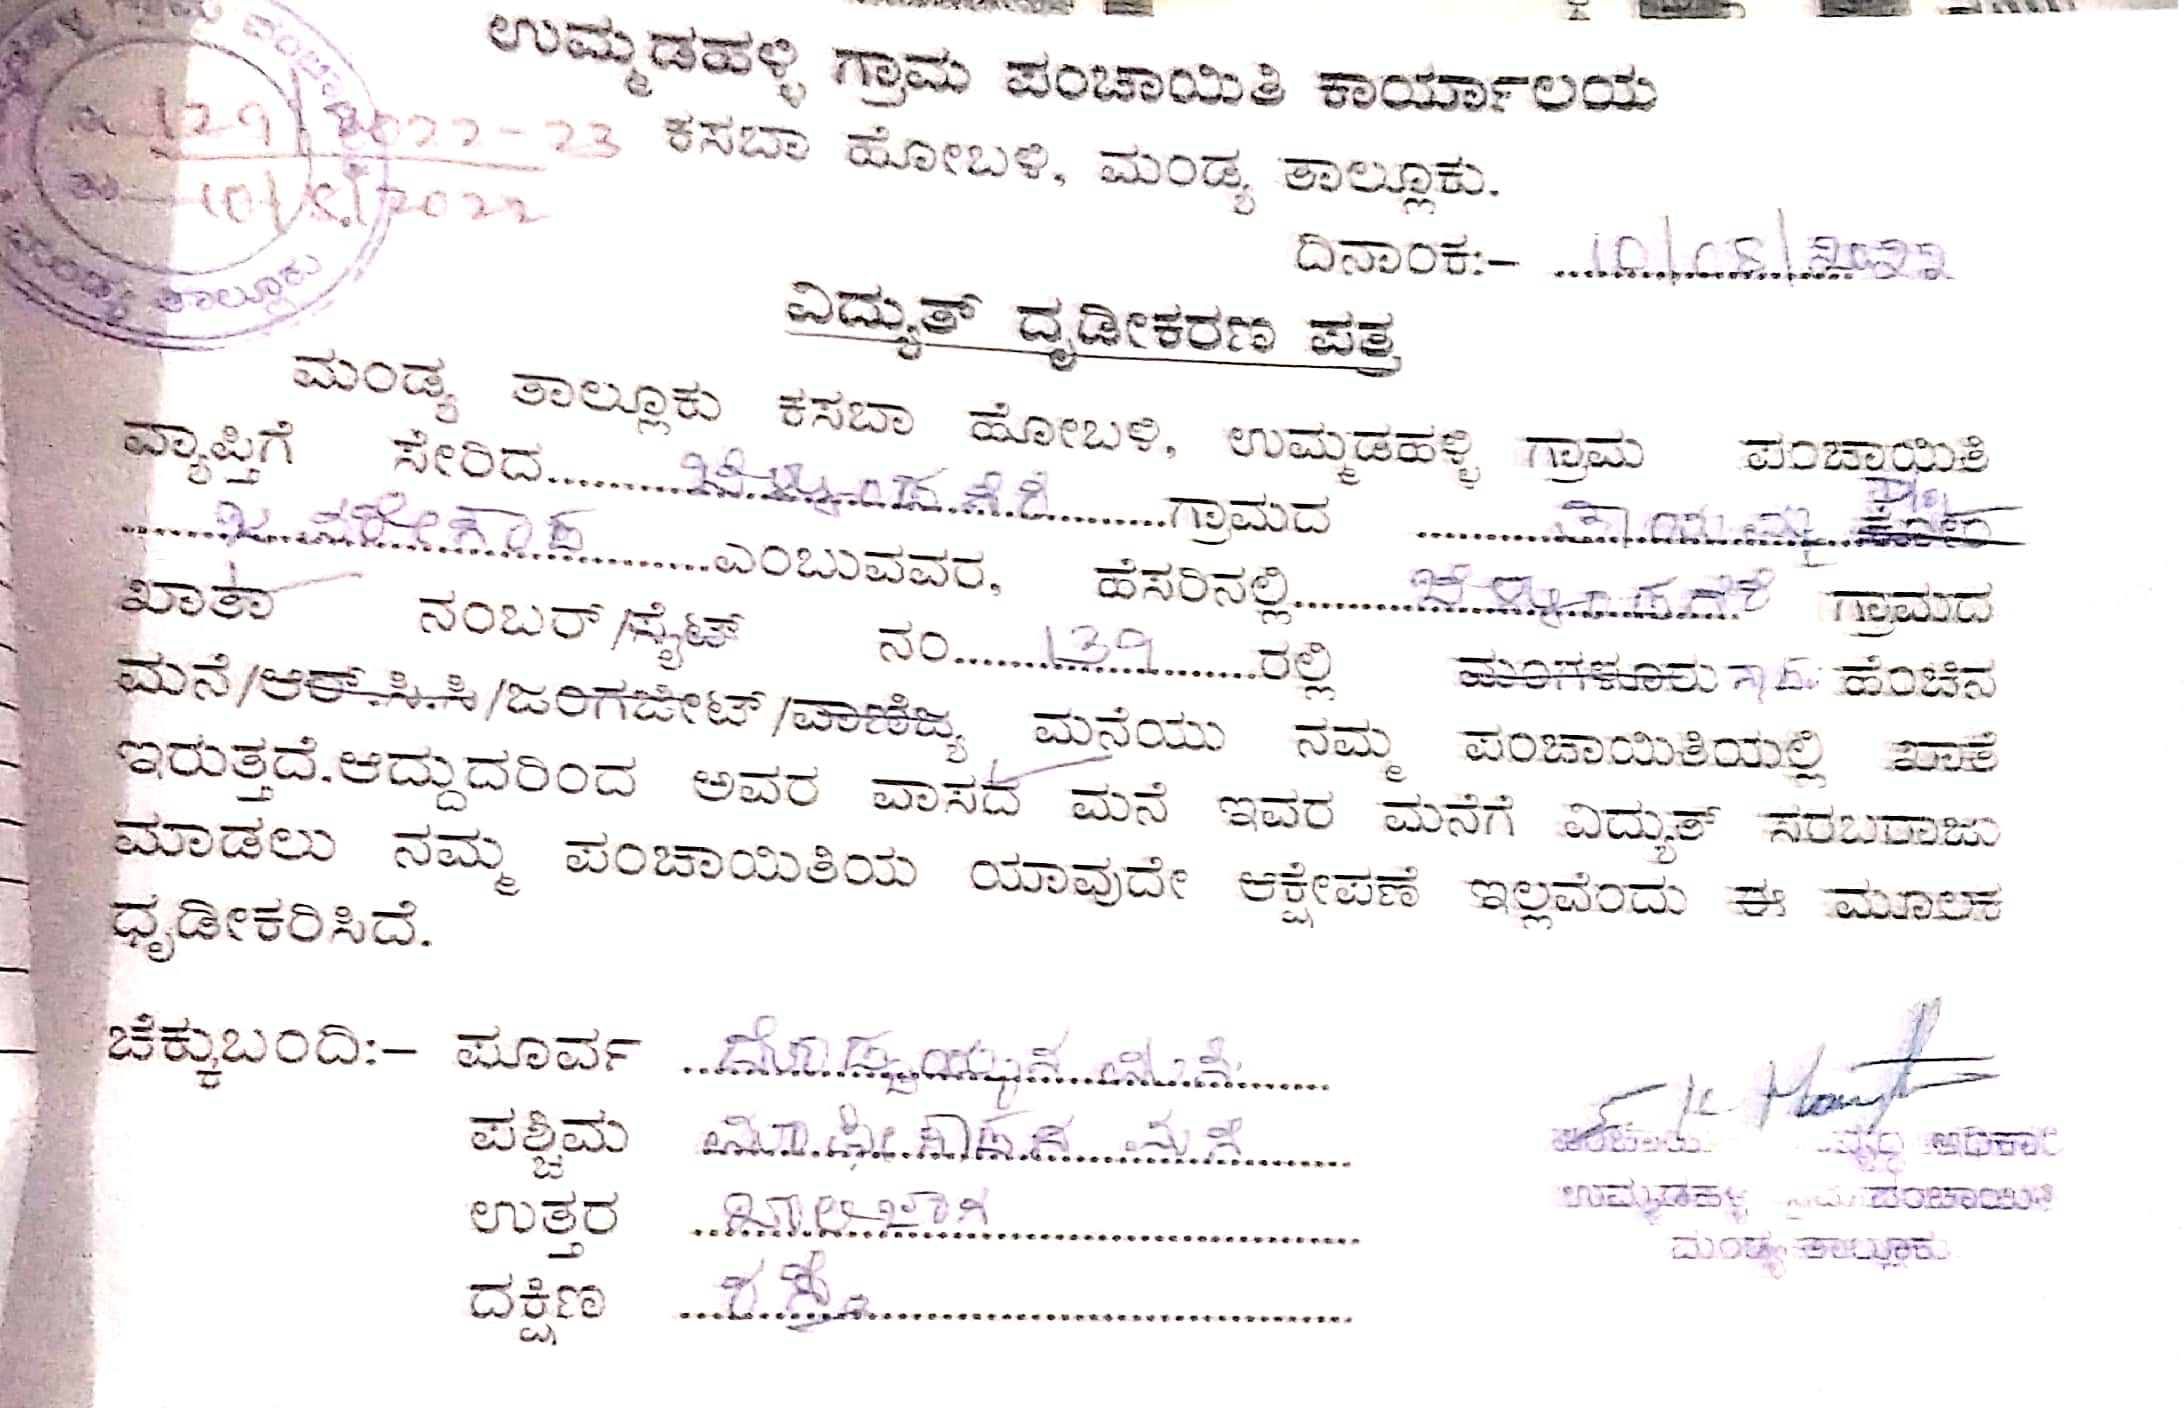 ಉಮ್ಮಡಹಳ್ಳಿ ಗ್ರಾಮ ಪಂಚಾಯಿತಿ ಕಾರ್ಯಾಲಯ
129/2022-23 ಕಸಬಾ ಹೋಬಳಿ, ಮಂಡ್ಯ ತಾಲ್ಲೂಕು.
10/5/2022
ಮಂಡ್ಯ ತಾಲ್ಲೂಕು
ದಿನಾಂಕ:- 10/05/2022
ವಿದ್ಯುತ್ ದೃಡೀಕರಣ ಪತ್ರ
ಮಂಡ್ಯ ತಾಲ್ಲೂಕು ಕಸಬಾ ಹೋಬಳಿ, ಉಮ್ಮಡಹಳ್ಳಿ ಗ್ರಾಮ ಪಂಚಾಯಿತಿ
ವ್ಯಾಪ್ತಿಗೆ ಸೇರಿದ ಬೆಳ್ಳುಂಡಗೆರೆ ಗ್ರಾಮದ ತಾಯಮ್ಮ
ಎಂಬುವವರ, ಹೆಸರಿನಲ್ಲಿ ಬೆಳ್ಳುಂಡಗೆರೆ ಗ್ರಾಮದ
ಖಾತಾ ನಂಬರ್/ಸೈಟ್ ನಂ 139 ರಲ್ಲಿ ಮಂಗಳೂರು ನಾಡ ಹೆಂಚಿನ
ಮನೆ/ಆರ್.ಸಿ.ಸಿ/ಜಂಗಜೀಟ್/ವಾಣಿಜ್ಯ ಮನೆಯು ನಮ್ಮ ಪಂಚಾಯಿತಿಯಲ್ಲಿ ಖಾತೆ
ಇರುತ್ತದೆ.ಆದ್ದುದರಿಂದ ಅವರ ವಾಸದ ಮನೆ ಇವರ ಮನೆಗೆ ವಿದ್ಯುತ್ ಸರಬರಾಜು
ಮಾಡಲು ನಮ್ಮ ಪಂಚಾಯಿತಿಯ ಯಾವುದೇ ಆಕ್ಷೇಪಣೆ ಇಲ್ಲವೆಂದು ಈ ಮೂಲಕ
ಧೃಡೀಕರಿಸಿದೆ.
ಚೆಕ್ಕುಬಂದಿ:- ಪೂರ್ವ ದೊಡ್ಡಯ್ಯನ ಮನೆ
ಪಶ್ಚಿಮ ಮನೆ
ಉತ್ತರ
ದಕ್ಷಿಣ ರಸ್ತೆ
ಅಭಿವೃದ್ಧಿ ಅಧಿಕಾರಿ
ಉಮ್ಮಡಹಳ್ಳಿ ಗ್ರಾಮ ಪಂಚಾಯಿತಿ
ಮಂಡ್ಯ ತಾಲ್ಲೂಕು